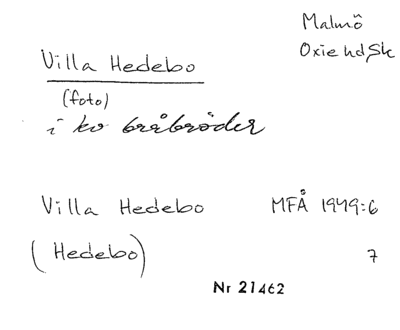 Malmö
Oxie hd, Sk
Villa Hedebo
(foto)
i kv bråbröder
Villa Hedebo MFÅ 1949:6
(Hedebo) 7
Nr 21462